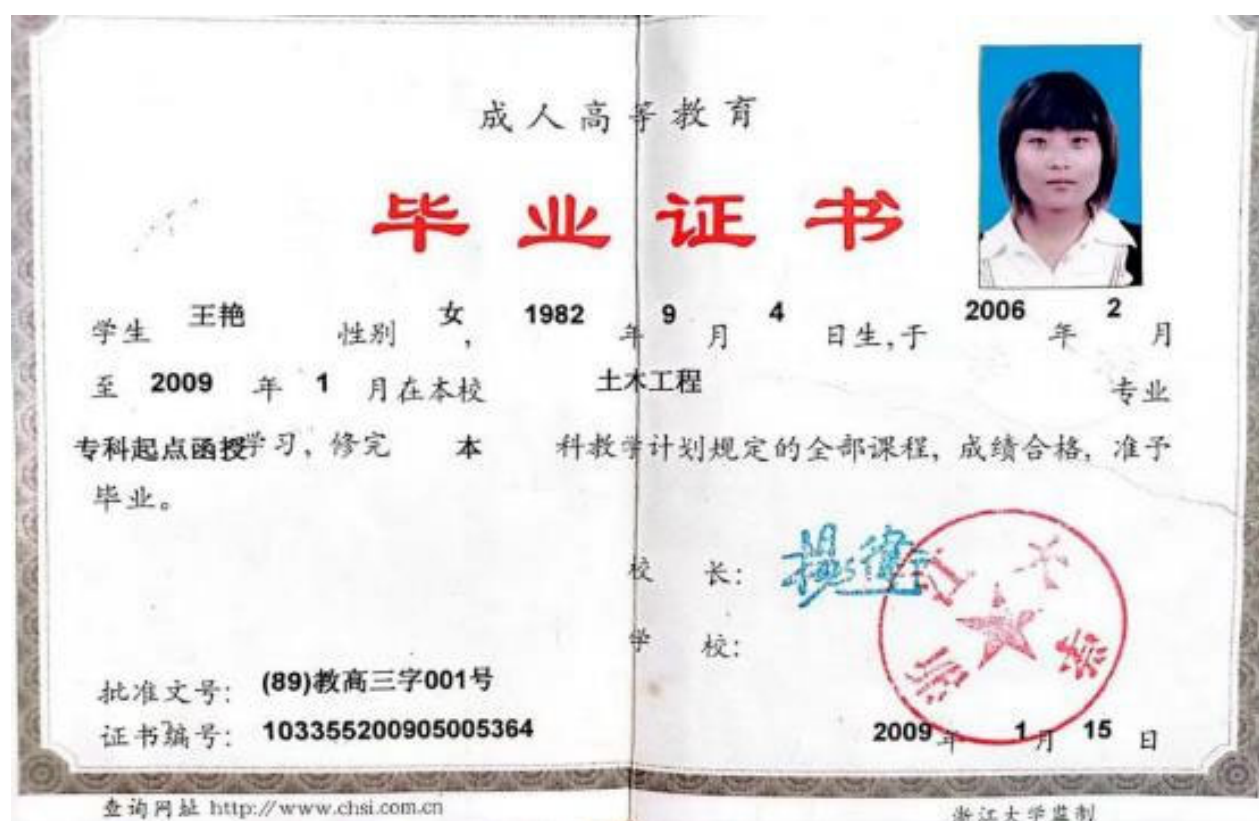 成人高等教育
毕业证书
学生 王艳 性别 女, 1982 年 9 月 4 日生,于 2006 年 2 月
至 2009 年 1 月在本校 土木工程 专业
专科起点函授学习, 修完 本 科教学计划规定的全部课程, 成绩合格, 准予
毕业。
校 长:
学 校:
浙江大学
批准文号: (89)教高三字001号
证书编号: 103355200905005364
2009 年 1 月 15 日
查询网址 http://www.chsi.com.cn
浙江大学监制